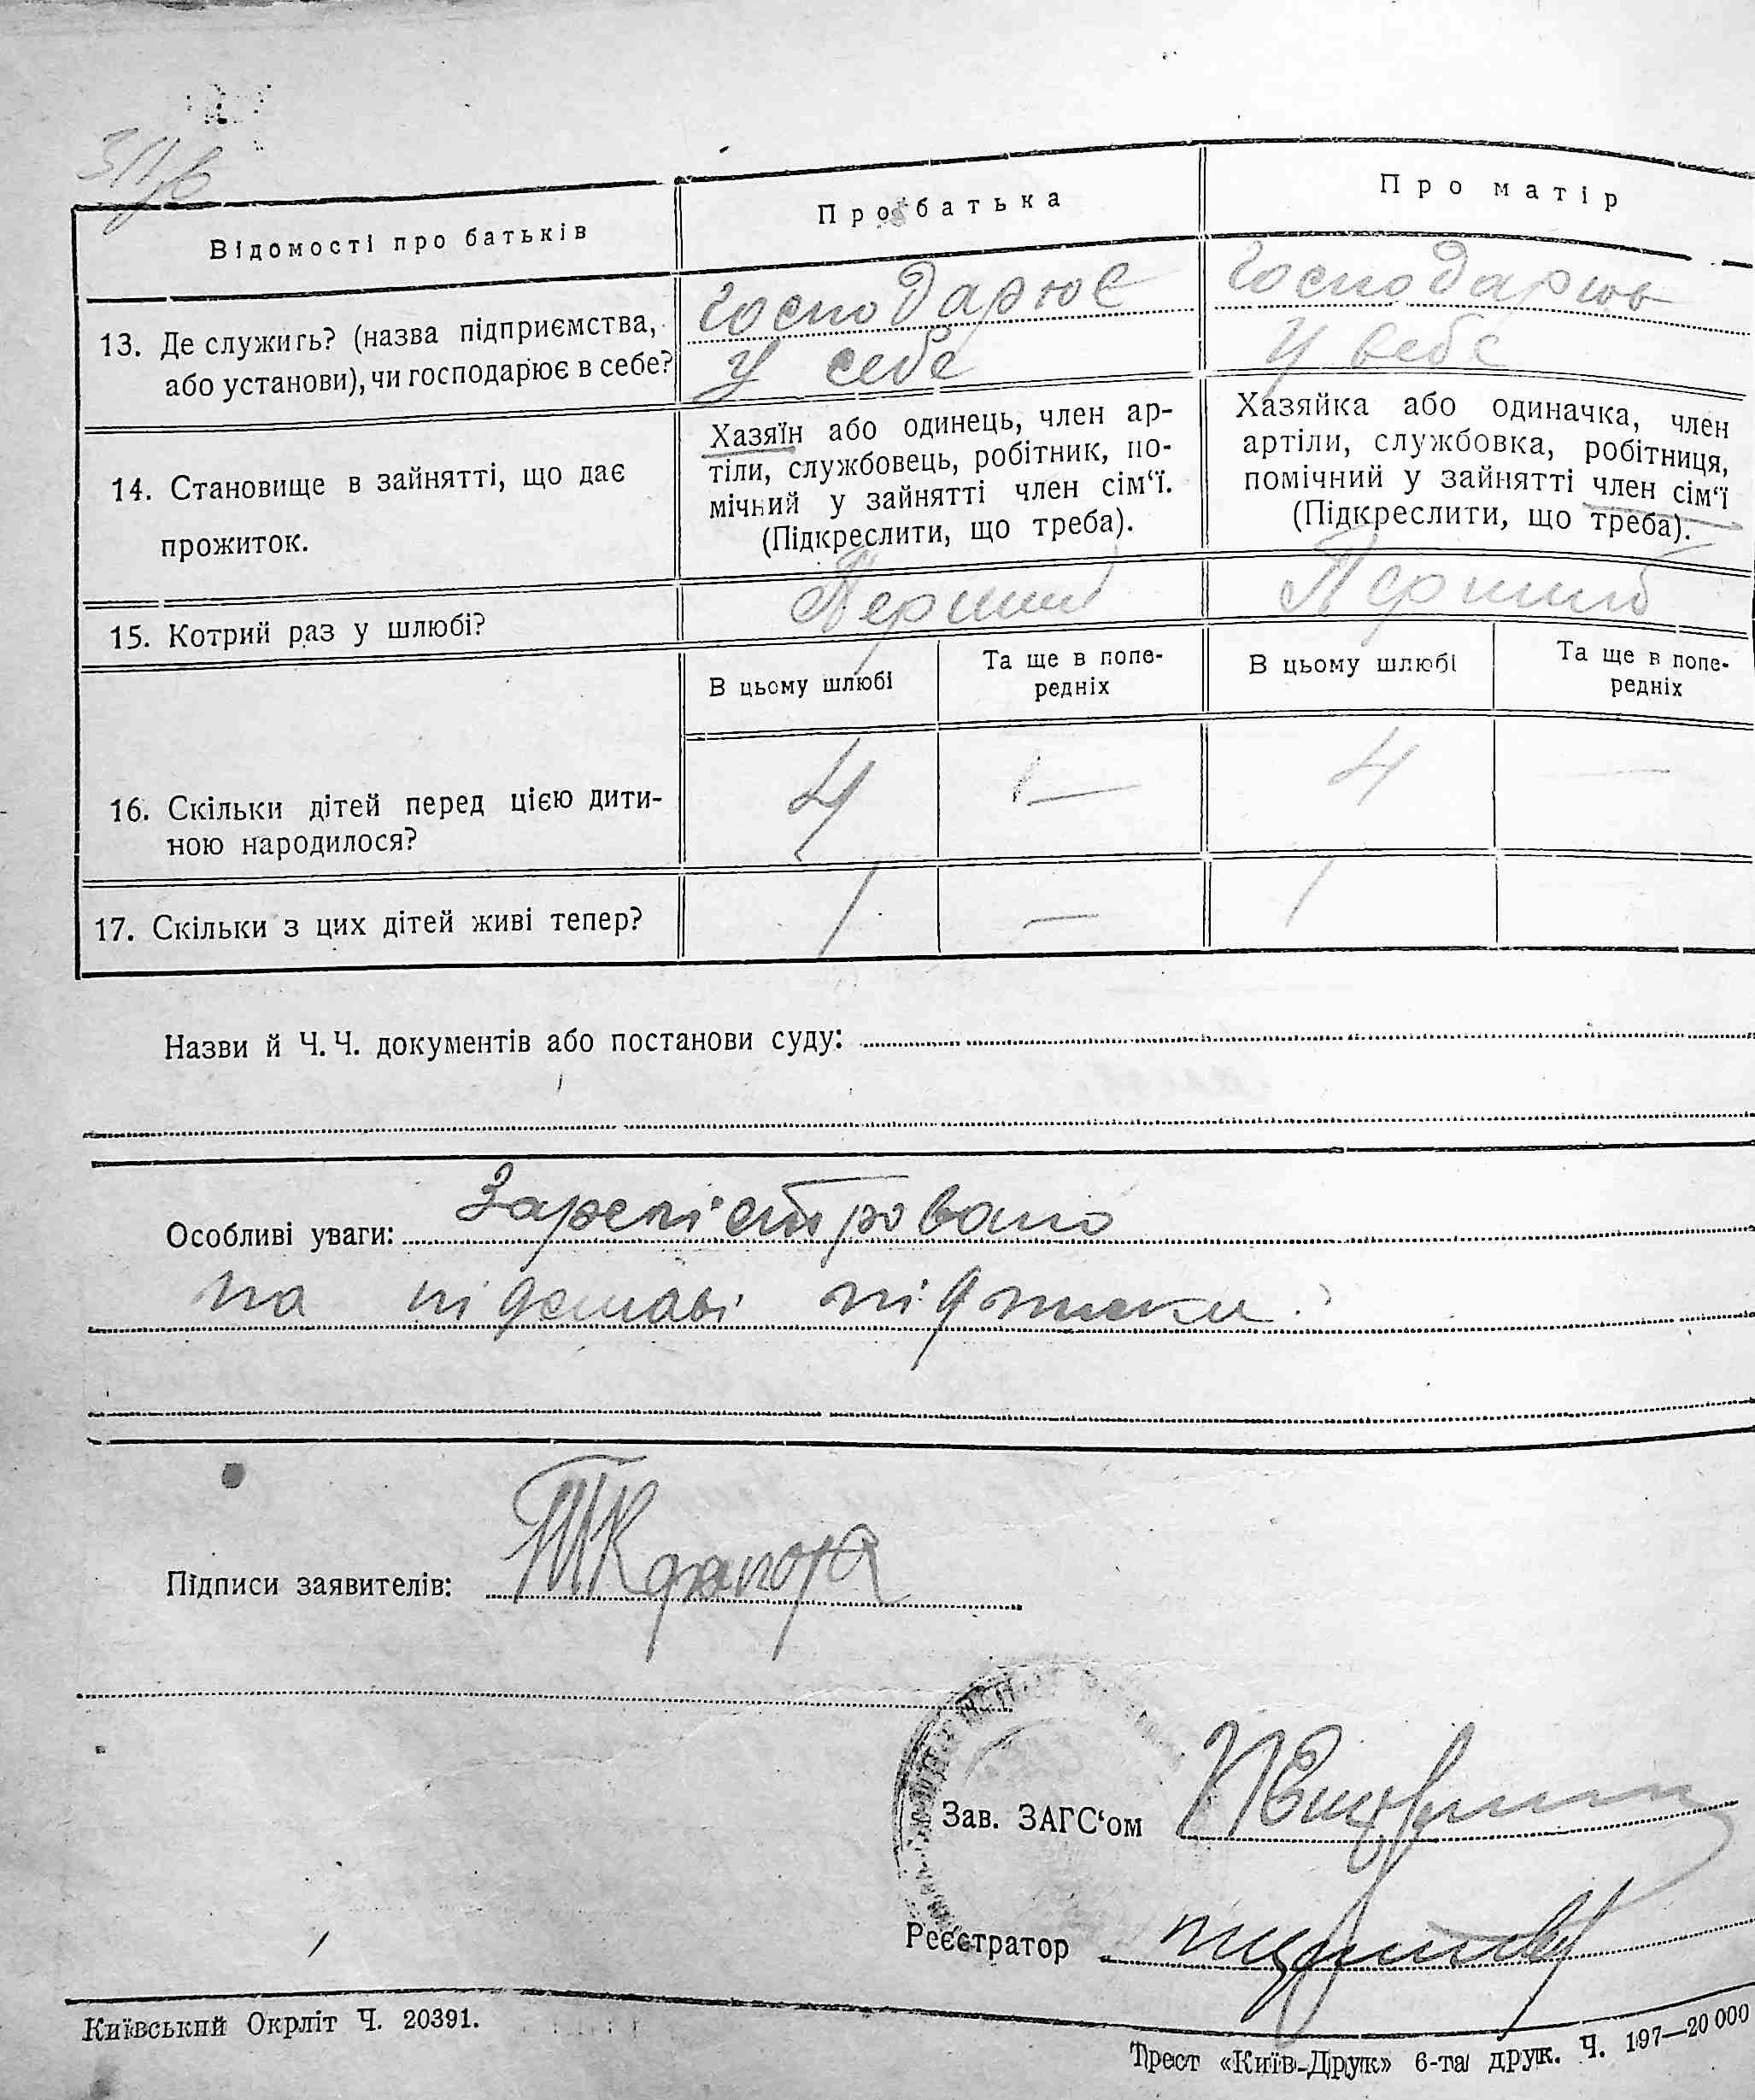 Відомості про батьків
Про батька
Про матір
13. Де служить? (назва підприємства, або установи), чи господарює в себе?
господарює
у себе
господарює
у себе
14. Становище в зайнятті, що дає прожиток.
Хазяїн або одинець, член ар-
тіли, службовець, робітник, по-
мічний у зайнятті член сім‘ї.
(Підкреслити, що треба).
Хазяйка або одиначка, член
артіли, службовка, робітниця,
помічний у зайнятті член сім‘ї
(Підкреслити, що треба).
15. Котрий раз у шлюбі?
Перший
Перший
В цьому шлюбі
Та ще в попе-
редніх
В цьому шлюбі
Та ще в попе-
редніх
16. Скільки дітей перед цією дити-
ною народилося?
4
—
4
—
17. Скільки з цих дітей живі тепер?
1
—
1
Назви й Ч.Ч. документів або постанови суду:
Особливі уваги: Зареєстровано
на підставі підписки
Підписи заявителів:
Зав. ЗАГС‘ом
Реєстратор
Київський Окрліт Ч. 20391.
Трест «Київ-Друк» 6-та друк. Ч. 197—20 000